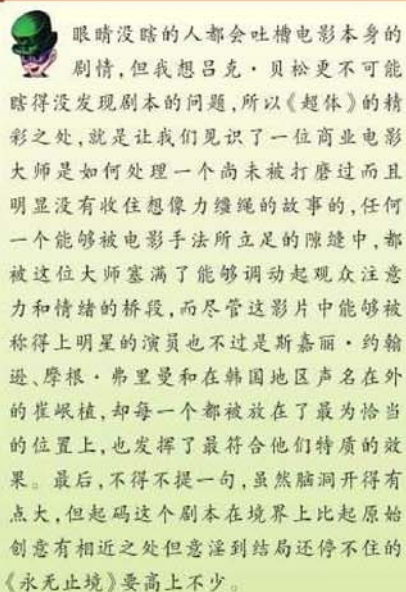 眼睛没瞎的人都会吐槽电影本身的
剧情,但我想吕克·贝松更不可能
瞎得没发现剧本的问题,所以《超体》的精
彩之处,就是让我们见识了一位商业电影
大师是如何处理一个尚未被打磨过而且
明显没有收住想像力缰绳的故事的,任何
一个能够被电影手法所立足的隙缝中,都
被这位大师塞满了能够调动起观众注意
力和情绪的桥段,而尽管这影片中能够被
称得上明星的演员也不过是斯嘉丽·约翰
逊、摩根·弗里曼和在韩国地区声名在外
的崔岷植,却每一个都被放在了最为恰当
的位置上,也发挥了最符合他们特质的效
果。最后,不得不提一句,虽然脑洞开得有
点大,但起码这个剧本在境界上比起原始
创意有相近之处但意淫到结局还停不住的
《永无止境》要高上不少。